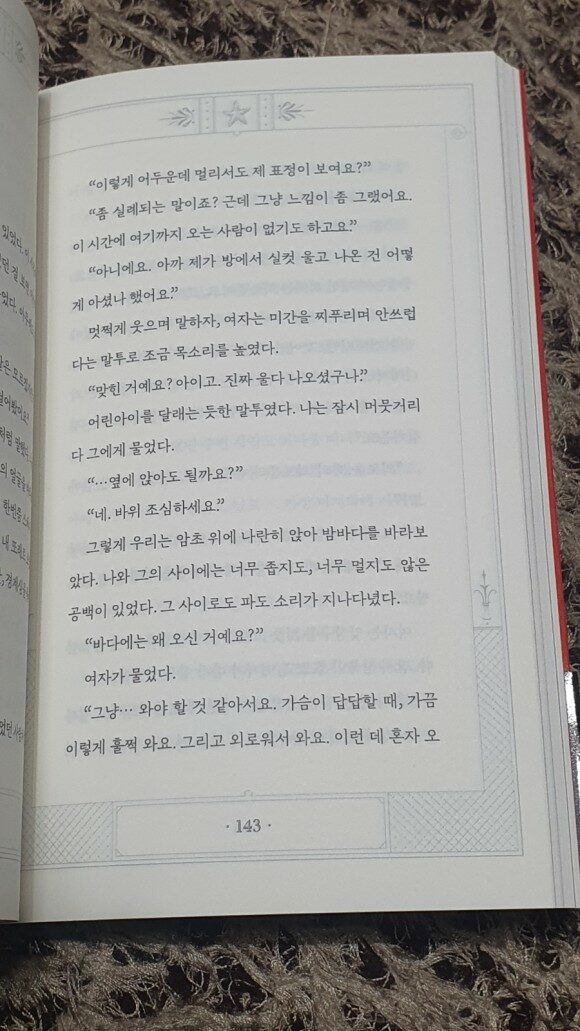 있었다.
“이렇게 어두운데 멀리서도 제 표정이 보여요?”
“좀 실례되는 말이죠? 근데 그냥 느낌이 좀 그랬어요.
이 시간에 여기까지 오는 사람이 없기도 하고요.”
“아니에요. 아까 제가 방에서 실컷 울고 나온 건 어떻
게 아셨나 했어요.”
멋쩍게 웃으며 말하자, 여자는 미간을 찌푸리며 안쓰럽
다는 말투로 조금 목소리를 높였다.
“맞힌 거예요? 아이고. 진짜 울다 나오셨구나.”
어린아이를 달래는 듯한 말투였다. 나는 잠시 머뭇거리
다 그에게 물었다.
“…옆에 앉아도 될까요?”
“네. 바위 조심하세요.”
그렇게 우리는 암초 위에 나란히 앉아 밤바다를 바라보
았다. 나와 그의 사이에는 너무 좁지도, 너무 멀지도 않은
공백이 있었다. 그 사이로도 파도 소리가 지나다녔다.
“바다에는 왜 오신 거예요?”
여자가 물었다.
“그냥… 와야 할 것 같아서요. 가슴이 답답할 때, 가끔
이렇게 훌쩍 와요. 그리고 외로워서 와요. 이런 데 혼자 오
· 143 ·